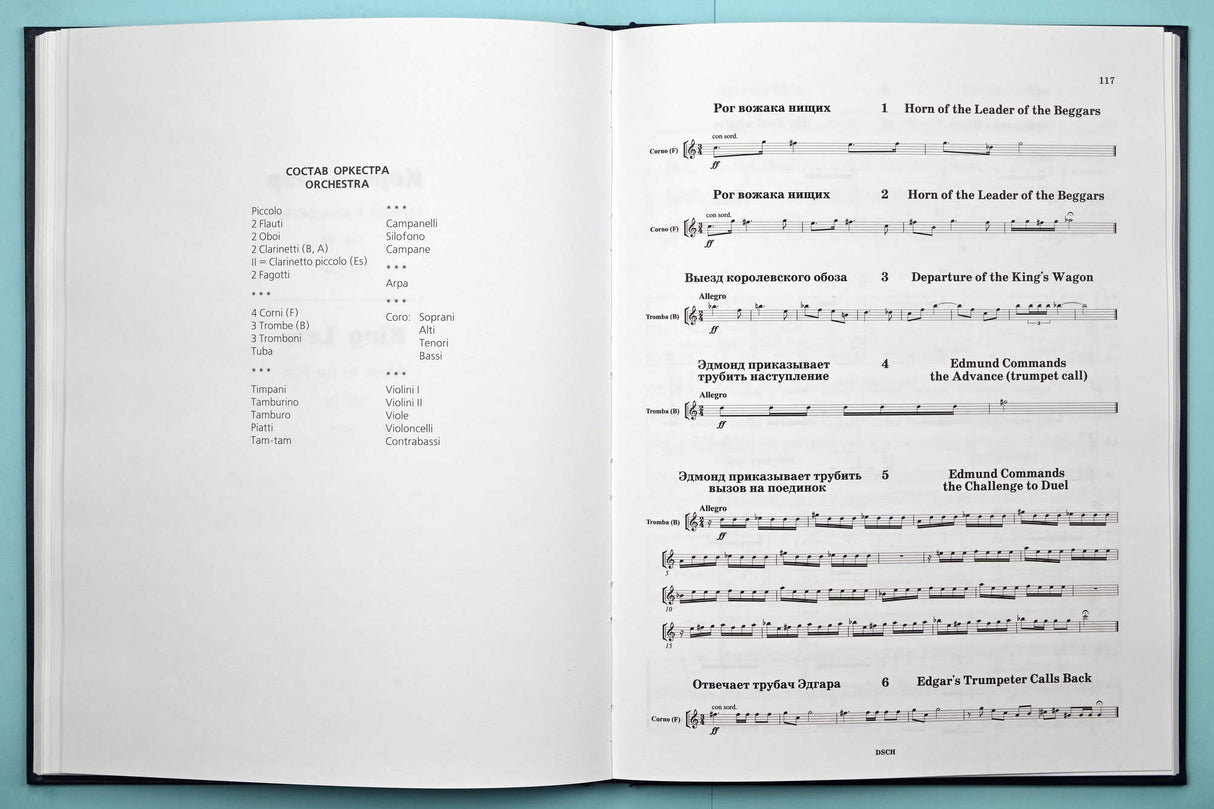 СОСТАВ ОРКЕСТРА
ORCHESTRA
Piccolo
2 Flauti
2 Oboi
2 Clarinetti (B, A)
II = Clarinetto piccolo (Es)
2 Fagotti
* * *
4 Corni (F)
3 Trombe (B)
3 Tromboni
Tuba
* * *
Timpani
Tamburino
Tamburo
Piatti
Tam-tam
* * *
Campanelli
Silofono
Campane
* * *
Arpa
* * *
Coro: Soprani
Alti
Tenori
Bassi
* * *
Violini I
Violini II
Viole
Violoncelli
Contrabassi
117
Рог вожака нищих 1 Horn of the Leader of the Beggars
con sord.
Corno (F)
ff
Рог вожака нищих 2 Horn of the Leader of the Beggars
con sord.
Corno (F)
ff
Выезд королевского обоза 3 Departure of the King's Wagon
Allegro
Tromba (B)
ff
3
Эдмонд приказывает 4 Edmund Commands
трубить наступление the Advance (trumpet call)
Allegro
Tromba (B)
ff
Эдмонд приказывает трубить 5 Edmund Commands
вызов на поединок the Challenge to Duel
Allegro
Tromba (B)
ff
5
10
15
Отвечает трубач Эдгара 6 Edgar's Trumpeter Calls Back
con sord.
Corno (F)
ff
DSCH